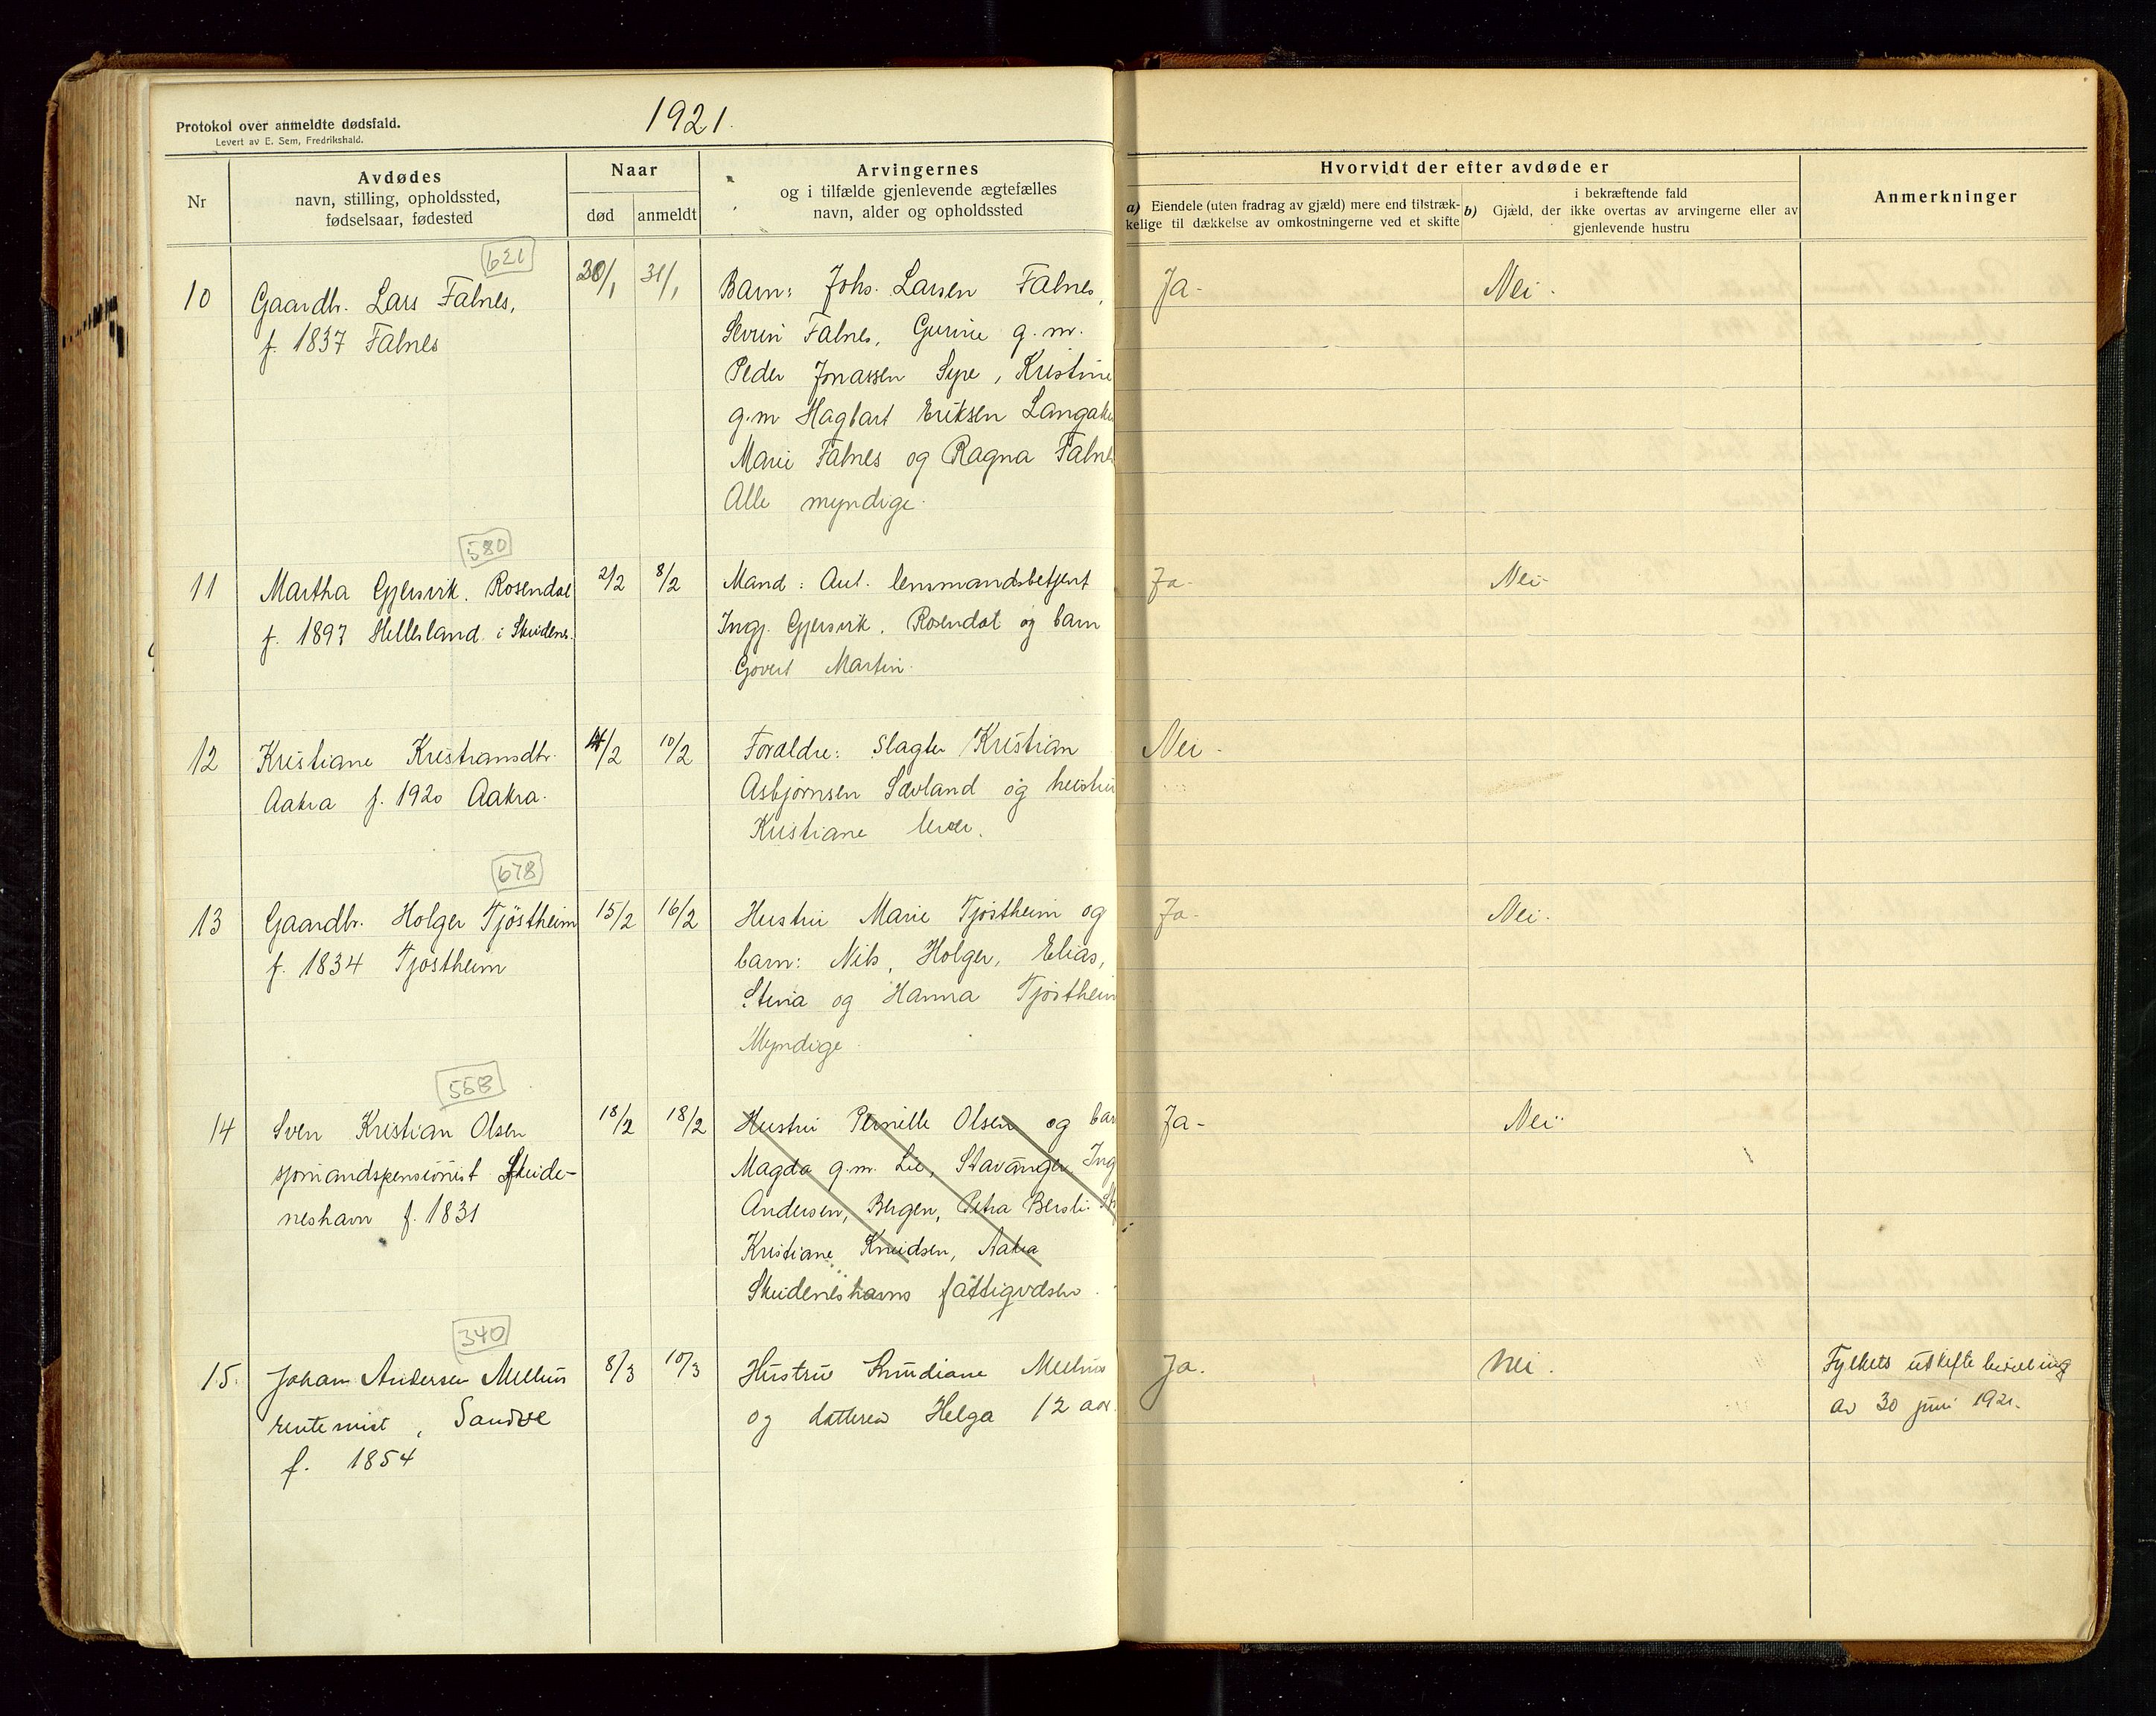 1921.
Protokol over anmeldte dødsfald.
Levert av E. Sem, Fredrikshald.
Nr
Avdødes
navn, stilling, opholdssted,
fødselsaar, fødested
Naar
død
anmeldt
Arvingernes
og i tilfælde gjenlevende ægtefælles
navn, alder og opholdssted
Hvorvidt der efter avdøde er
a) Eiendele (uten fradrag av gjæld) mere end tilstræk-
kelige til dækkelse av omkostningerne ved et skifte
i bekræftende fald
b) Gjæld, der ikke overtas av arvingerne eller av
gjenlevende hustru
Anmerkninger
621
10
Gaardbr. Lars Falnes,
f. 1837 Falnes
30/1
31/1
Barn: Johs. Larsen Falnes,
Severin Falnes, Gurine g.m.
Peder Jonassen Syre, Kristine
g.m Hagbart Eriksen Langaker
Marie Falnes og Ragna Falnes
Alle myndige.
Ja-
Nei.
580
11
Martha Gjersvik. Rosendal
f. 1897 Hellesland i Skudenes.
2/2
8/2
Mand: Aut. lensmandsbetjent
Ingj. Gjersvik. Rosendal og barn
Govert Martin.
Ja-
Nei-
12
Kristiane Kristiansdtr.
Aakra f. 1920 Aakra.
4/2
10/2
Forældre: Slagter Kristian
Asbjørnsen Sævland og hustru
Kristiane lever.
Nei-
678
13
Gaardbr. Holger Tjøstheim
f. 1834 Tjøstheim
15/2
16/2
Hustru Marie Tjøstheim og
barn: Nils, Holger, Elias,
Stina og Hanna Tjøstheim
Myndige.
Ja-
Nei.
558
14
Sven Kristian Olsen
sjømandspensionist Skude-
neshavn f. 1831
18/2
18/2
Hustru Pernille Olsen og bar
Magda g.m. Lie, Stavanger, Ing
Andersen, Bergen, Petra
Kristiane Knudsen, Aakra
Skudeneshavns fattigvæsen.
Ja-
Nei
340
15.
Johan Andersen Mælhus
rentenist, Sandve
f. 1854
8/3
10/3
Hustru Knudiane Mælhus
og datteren Helga 12 aar.
Ja.
Nei.
Fylkets utskiftebevilling
av 30 juni 1921.